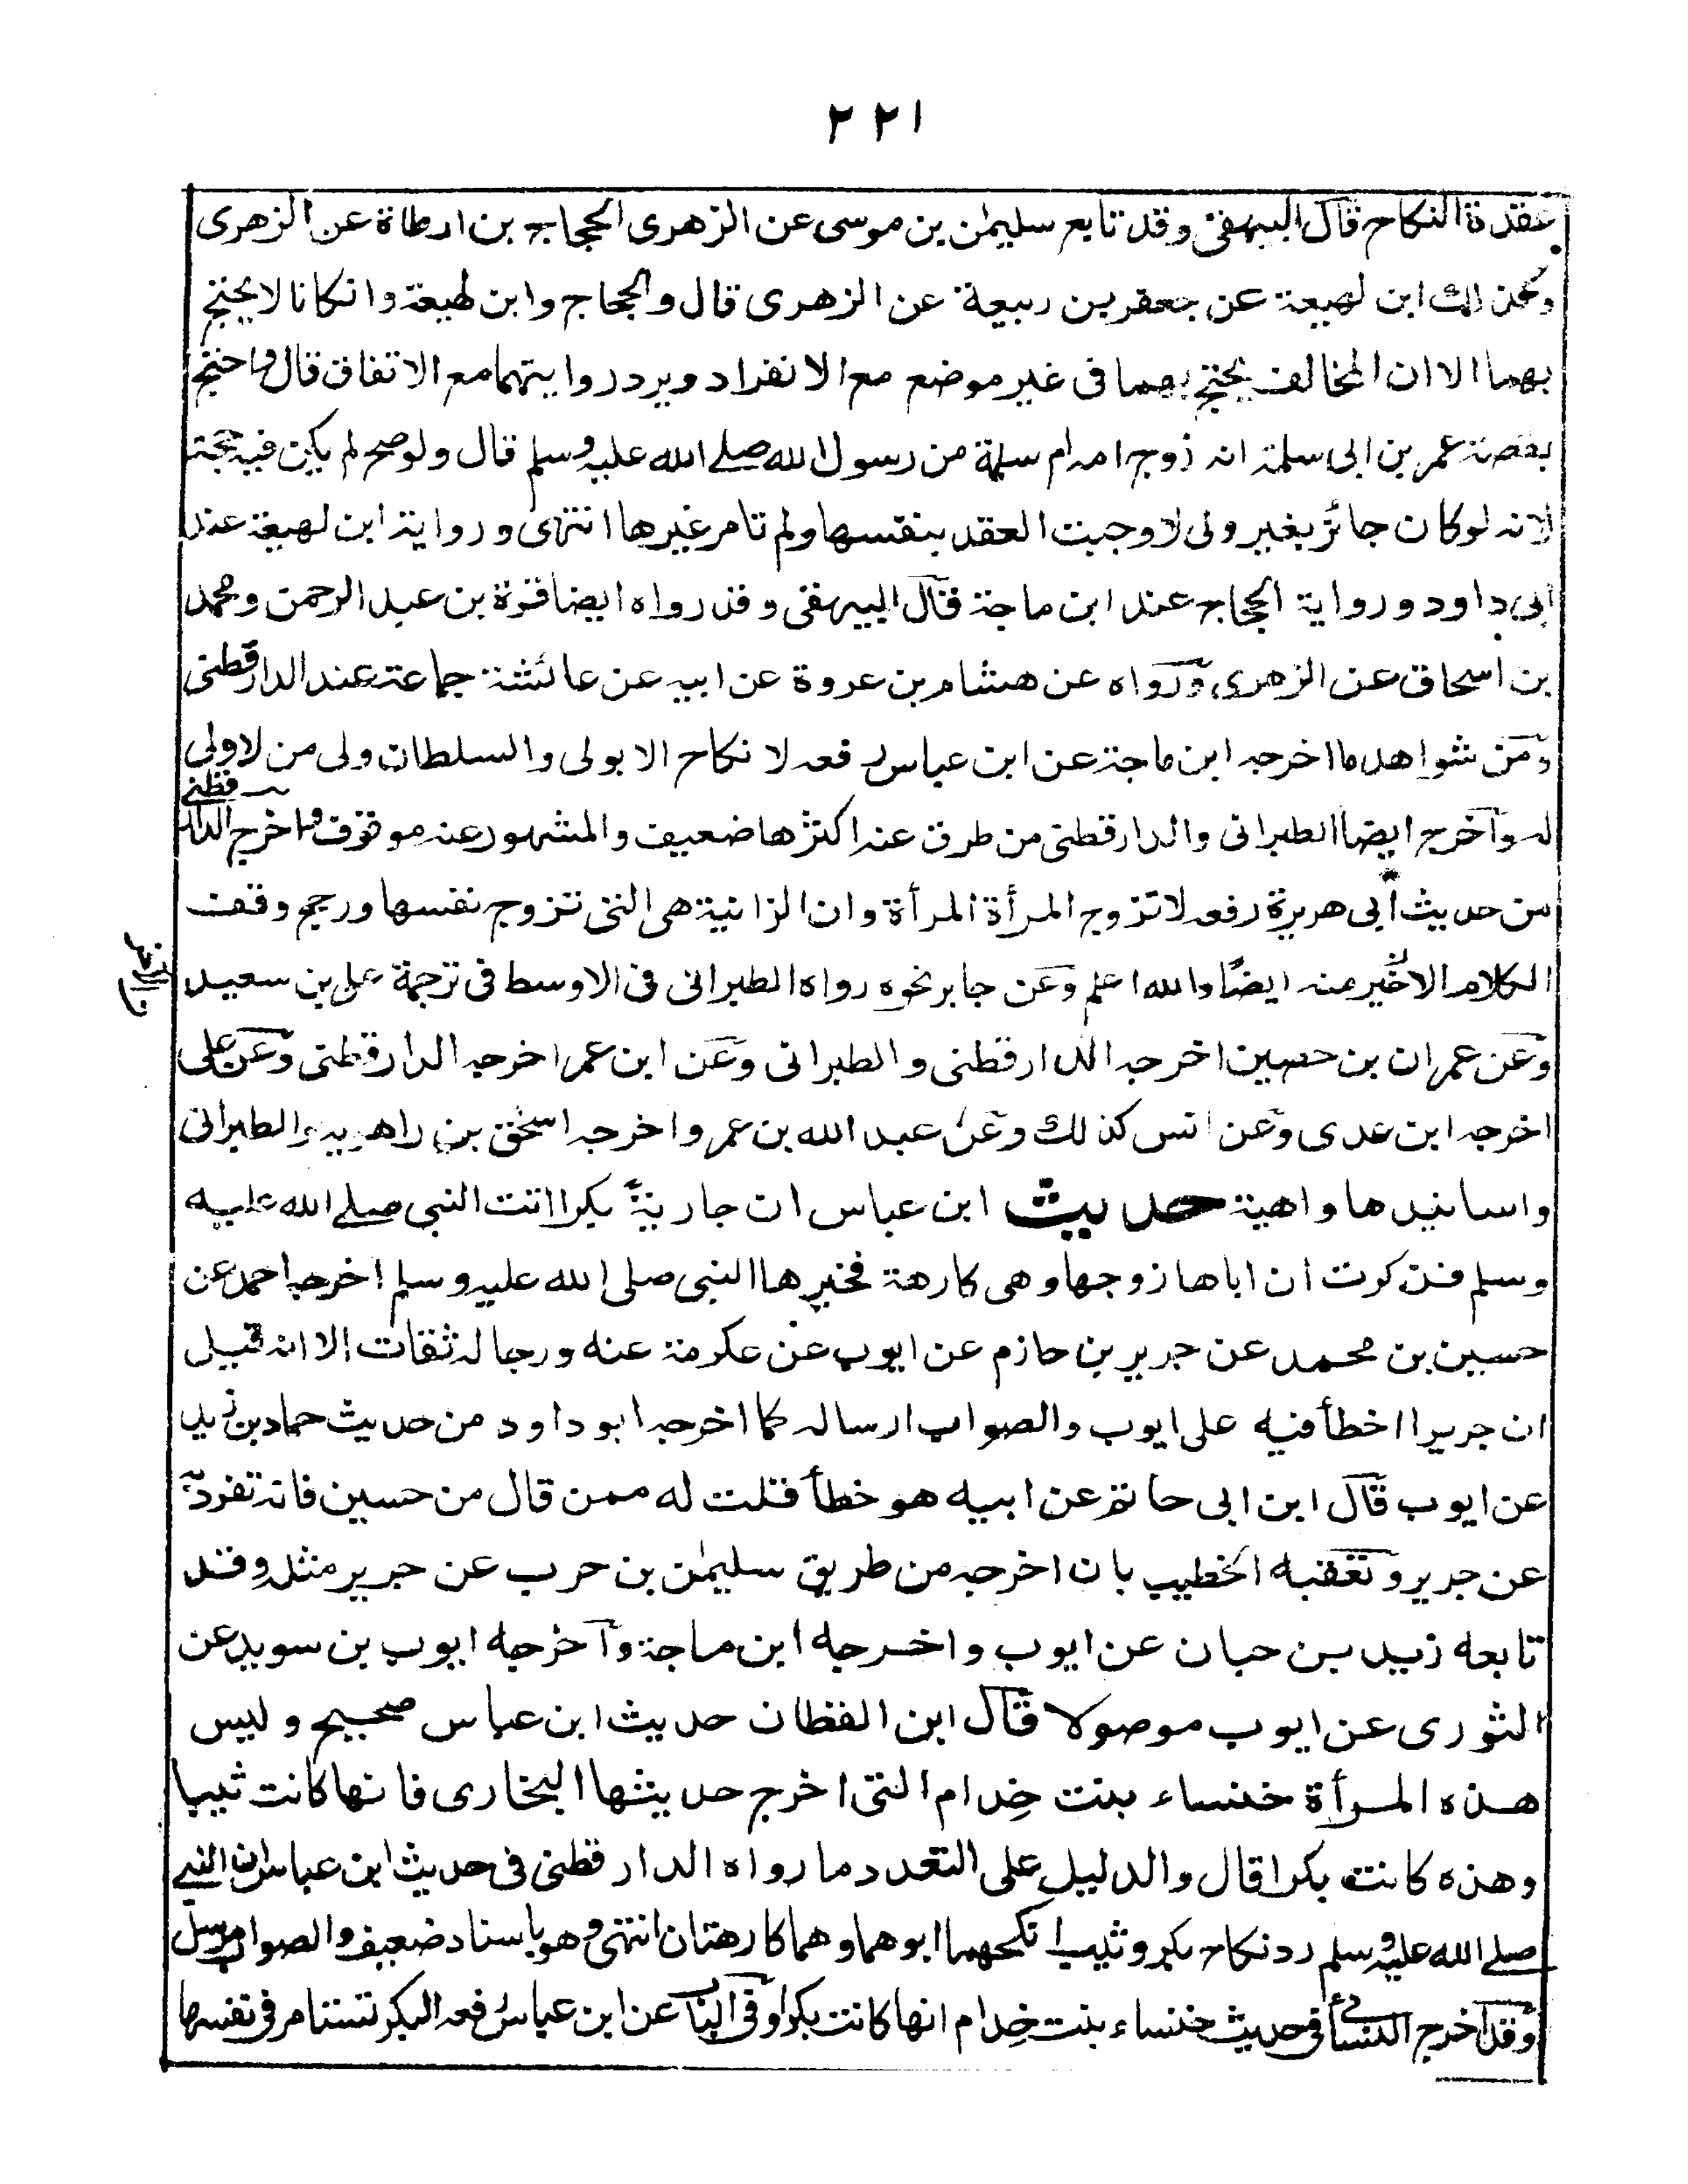 ٢٢١
عقدة النكاح قال البيهقى وقد تابع سليمٰن بن موسى عن الزهرى الحجاج بن ارطاة عن الزهرى
وكذلك ابن لهيعة عن جعفر بن ربيعة عن الزهرى قال والحجاج وابن لهيعة وانكانا لا يحتج
بهما الا ان المخالف يحتج بهما فى غير موضع مع الانفراد ويرد روايتهما مع الاتفاق قال واحتج
بقصة عمر بن ابى سلمة انه زوج امه ام سلمة من رسول الله صلے الله عليه وسلم قال ولو صح لم يكن فيه حجة
لانه لو كان جائز بغير ولى لاوجبت العقد بنفسها ولم تامر غيرها انتهى ورواية ابن لهيعة عند
ابى داود ورواية الحجاج عند ابن ماجة قال البيهقى وقد رواه ايضا قرة بن عبد الرحمن ومحمد
بن اسحاق عن الزهرى ورواه عن هشام بن عروة عن ابيه عن عائشة جماعة عند الدارقطنى
ومن شواهده ما اخرجه ابن ماجة عن ابن عباس رفعه لا نكاح الا بولى والسلطان ولى من لا ولى
له وآخرج ايضا الطبرانى والدارقطنى من طرق عنه اكثرها ضعيف والمشهور عنه موقوف واخرج الدارقطنے
من حديث أبى هريرة رفعه لا تزوج المرأة المرأة وان الزانية هى التى تزوج نفسها ورجح وقف
الكلام الاخير منه ايضًا والله اعلم وعن جابر نحوه رواه الطبرانى فى الاوسط فى ترجمة على بن سعيد
وعن عمران بن حصين اخرجه الدارقطنى والطبرانى وعن ابن عمر اخرجه الدارقطنى وعن على
اخرجه ابن عدى وعن انس كذلك وعن عبد الله بن عمرو اخرجه اسحٰق بن راهويه والطبرانى
واسانيدها واهية حديث ابن عباس ان جارية بكرا اتت النبي صلے الله عليه
وسلم فذكرت ان اباها زوجها وهى كارهة فخيرها النبى صلى الله عليه وسلم اخرجه احمد عن
حسين بن محمد عن جرير بن حازم عن ايوب عن عكرمة عنه ورجاله ثقات الا انه قيل
ان جريرا اخطأ فيه على ايوب والصواب ارساله كما اخرجه ابو داود من حديث حماد بن زيد
عن ايوب قال ابن ابى حاتم عن ابيه هو خطأ قلت له ممن قال من حسين فانه تفرد به
عن جرير وتعقبه الخطيب بان اخرجه من طريق سليمٰن بن حرب عن جرير مثله وقد
تابعه زيد بن حبان عن ايوب واخرجه ابن ماجة وآخرجه ايوب بن سويد عن
الثورى عن ايوب موصولا قال ابن القطان حديث ابن عباس صحيح وليس
هذه المرأة خنساء بنت خِدام التى اخرج حديثها البخارى فانها كانت ثيبا
وهذه كانت بكرا قال والدليل على التعدد ما رواه الدارقطنى فى حديث ابن عباس ان النبے
صلے الله عليه وسلم رد نكاح بكر وثيب انكحهما ابوهما وهما كارهتان انتهى وهو باسناد ضعيف والصواب مرسل
وقد اخرج النسائى فى حديث خنساء بنت خِدام انها كانت بكرا وفى الباب عن ابن عباس رفعه البكر تستامر فى نفسها